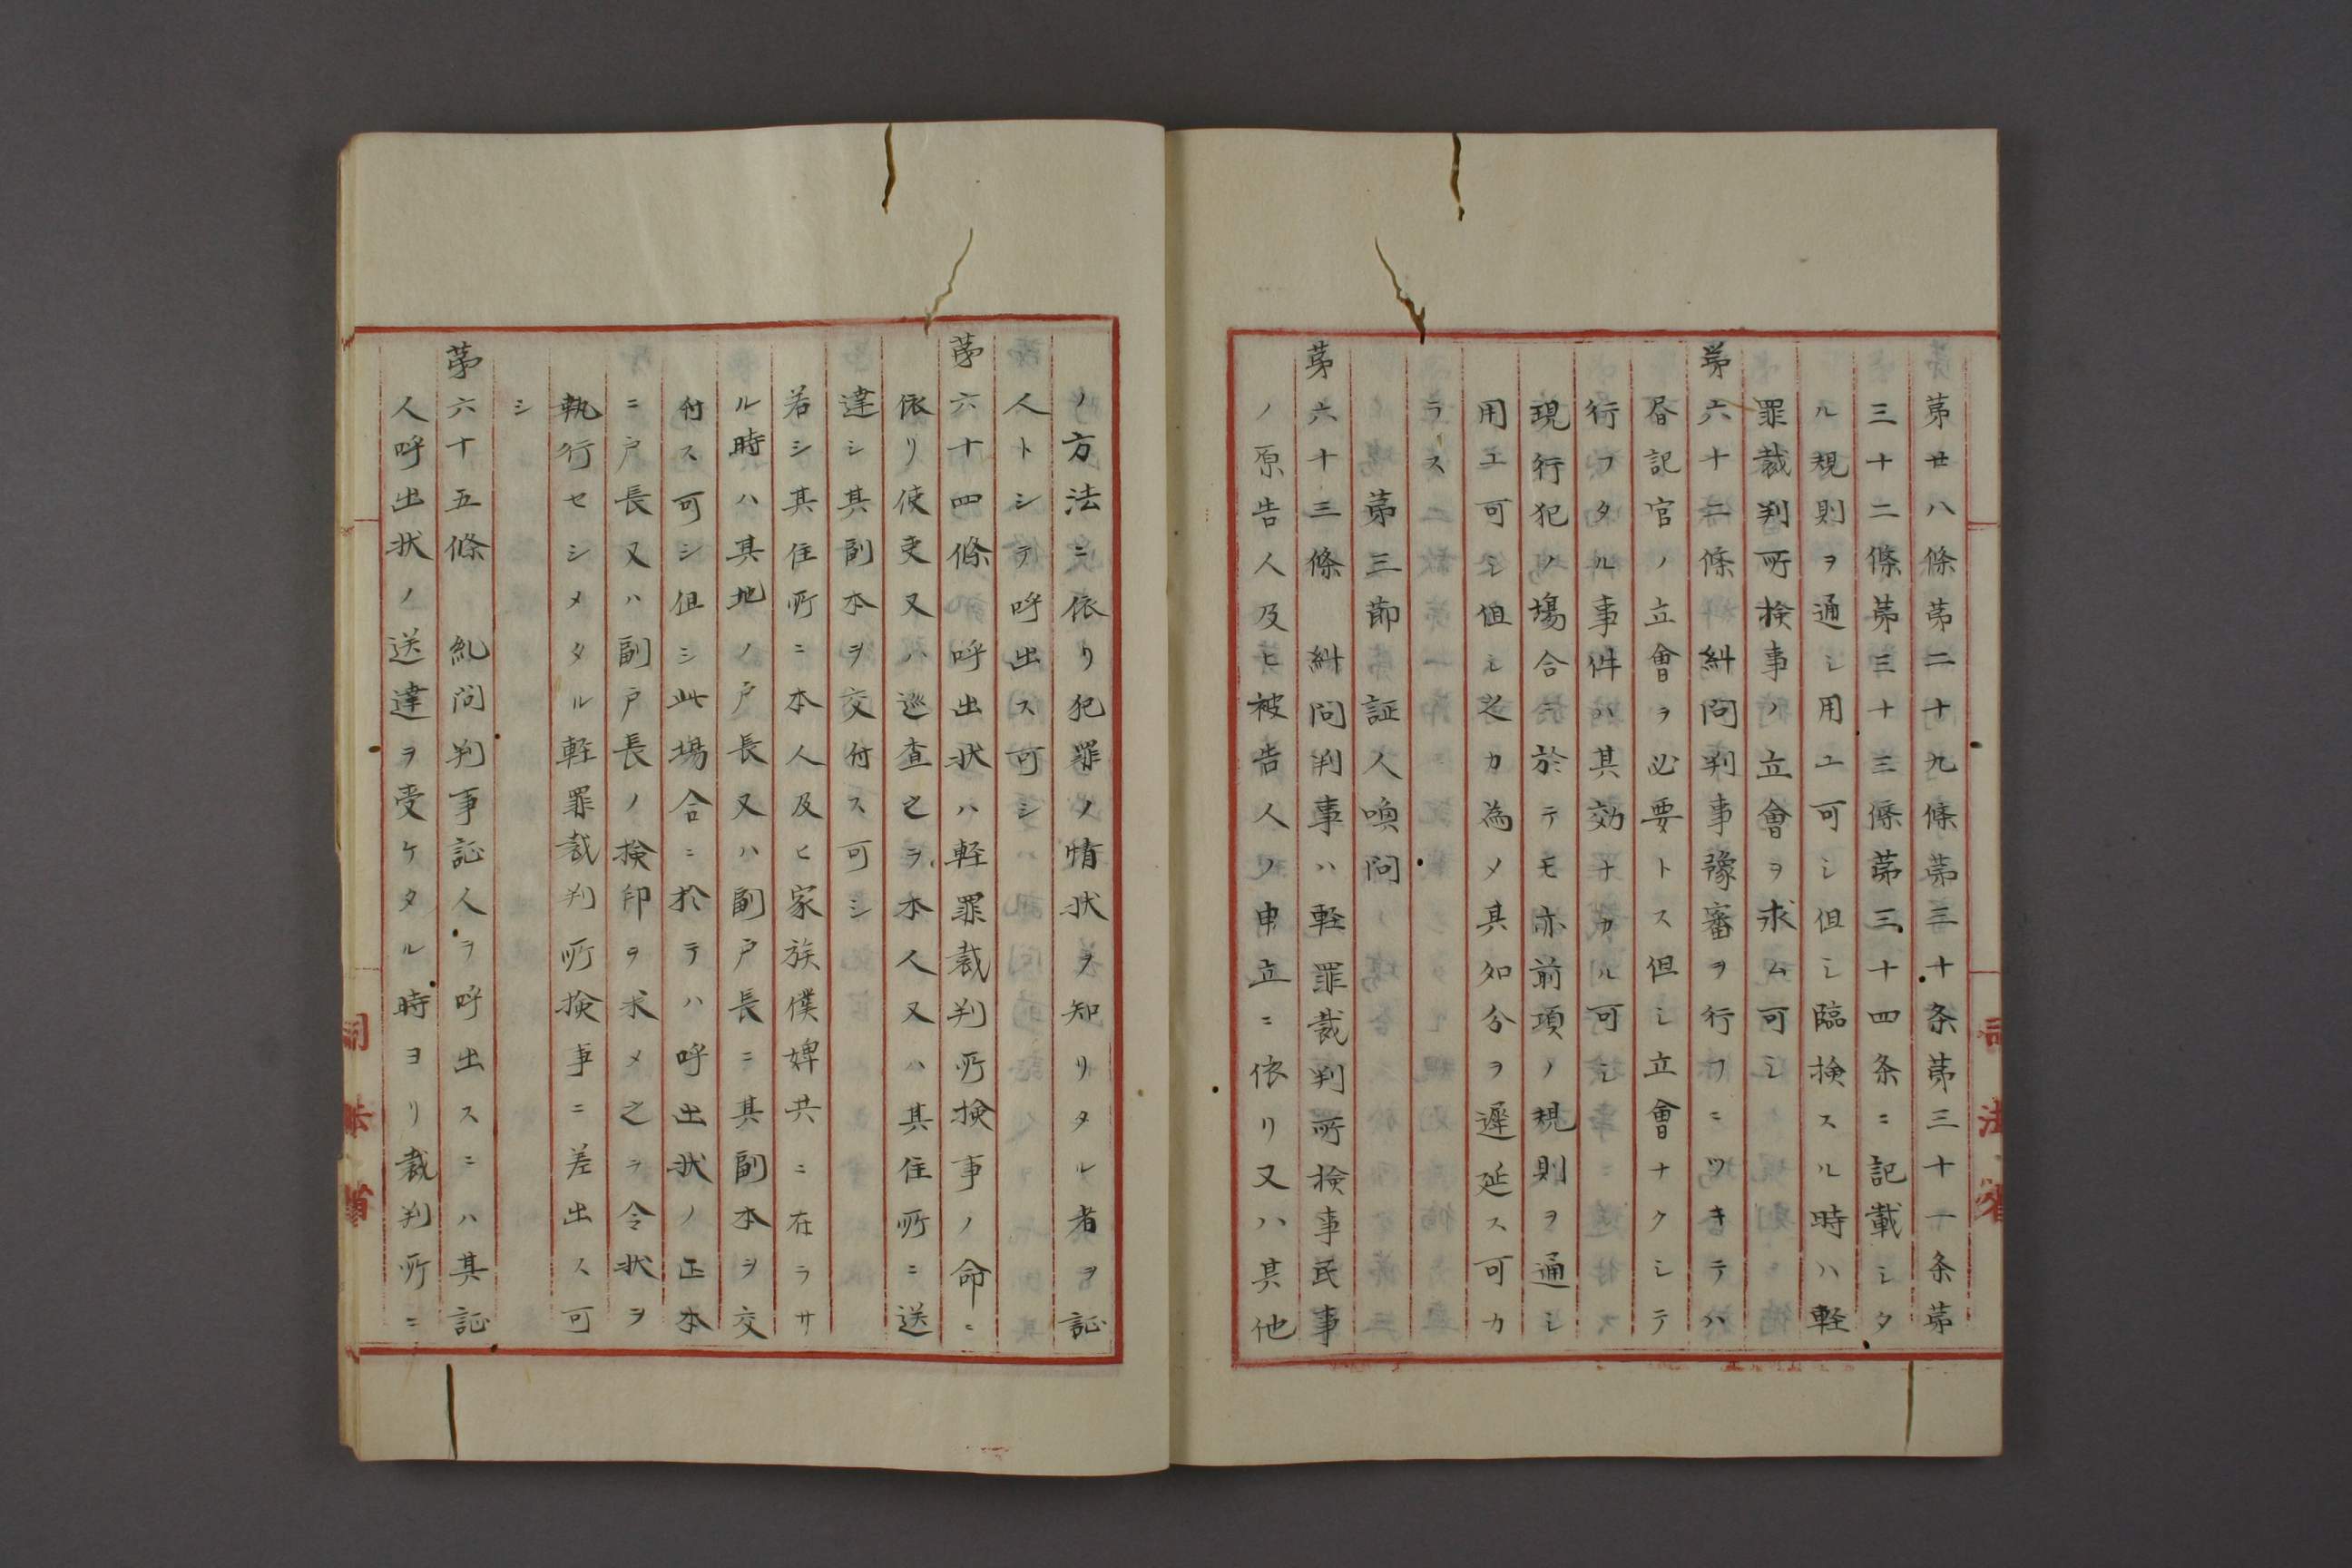 第廿八條第二十九條第三十条第三十一条第
三十二條第三十三條第三十四条ニ記載シタ
ル規則ヲ通シ用ユ可シ但シ臨検スル時ハ軽
罪裁判所検事ノ立會ヲ求ム可シ
第六十二條糾問判事豫審ヲ行フニツキテハ
昏記官ノ立會ヲ必要トス但シ立會ナクシテ
行フタル事件ハ其効ナカル可シ
現行犯ノ場合ニ於テモ亦前項ノ規則ヲ通シ
用エ可シ但シ之カ為メ其処分ヲ遲延ス可カ
ラス
第三節 証人喚問
第六十三條 糾問判事ハ軽罪裁判所検事民事
ノ原告人及ヒ被告人ノ申立ニ依リ又ハ其他
ノ方法ニ依リ犯罪ノ情状ヲ知リタル者ヲ証
人トシテ呼出ス可シ
第六十四條 呼出状ハ軽罪裁判所検事ノ命ニ
依リ使吏又ハ巡査之ヲ本人又ハ其住所ニ送
達シ其副本ヲ交付ス可シ
若シ其住所ニ本人及ヒ家族僕婢共ニ在ラサ
ル時ハ其地ノ戸長又ハ副戸長ニ其副本ヲ交
付ス可シ但シ此場合ニ於テハ呼出状ノ正本
ニ戸長又ハ副戸長ノ検印ヲ求メ之ヲ令状ヲ
執行セシメタル軽罪裁判所検事ニ差出ス可
シ
第六十五條 糺問判事証人ヲ呼出スニハ其証
人呼出状ノ送達ヲ受ケタル時ヨリ裁判所ニ
司法省